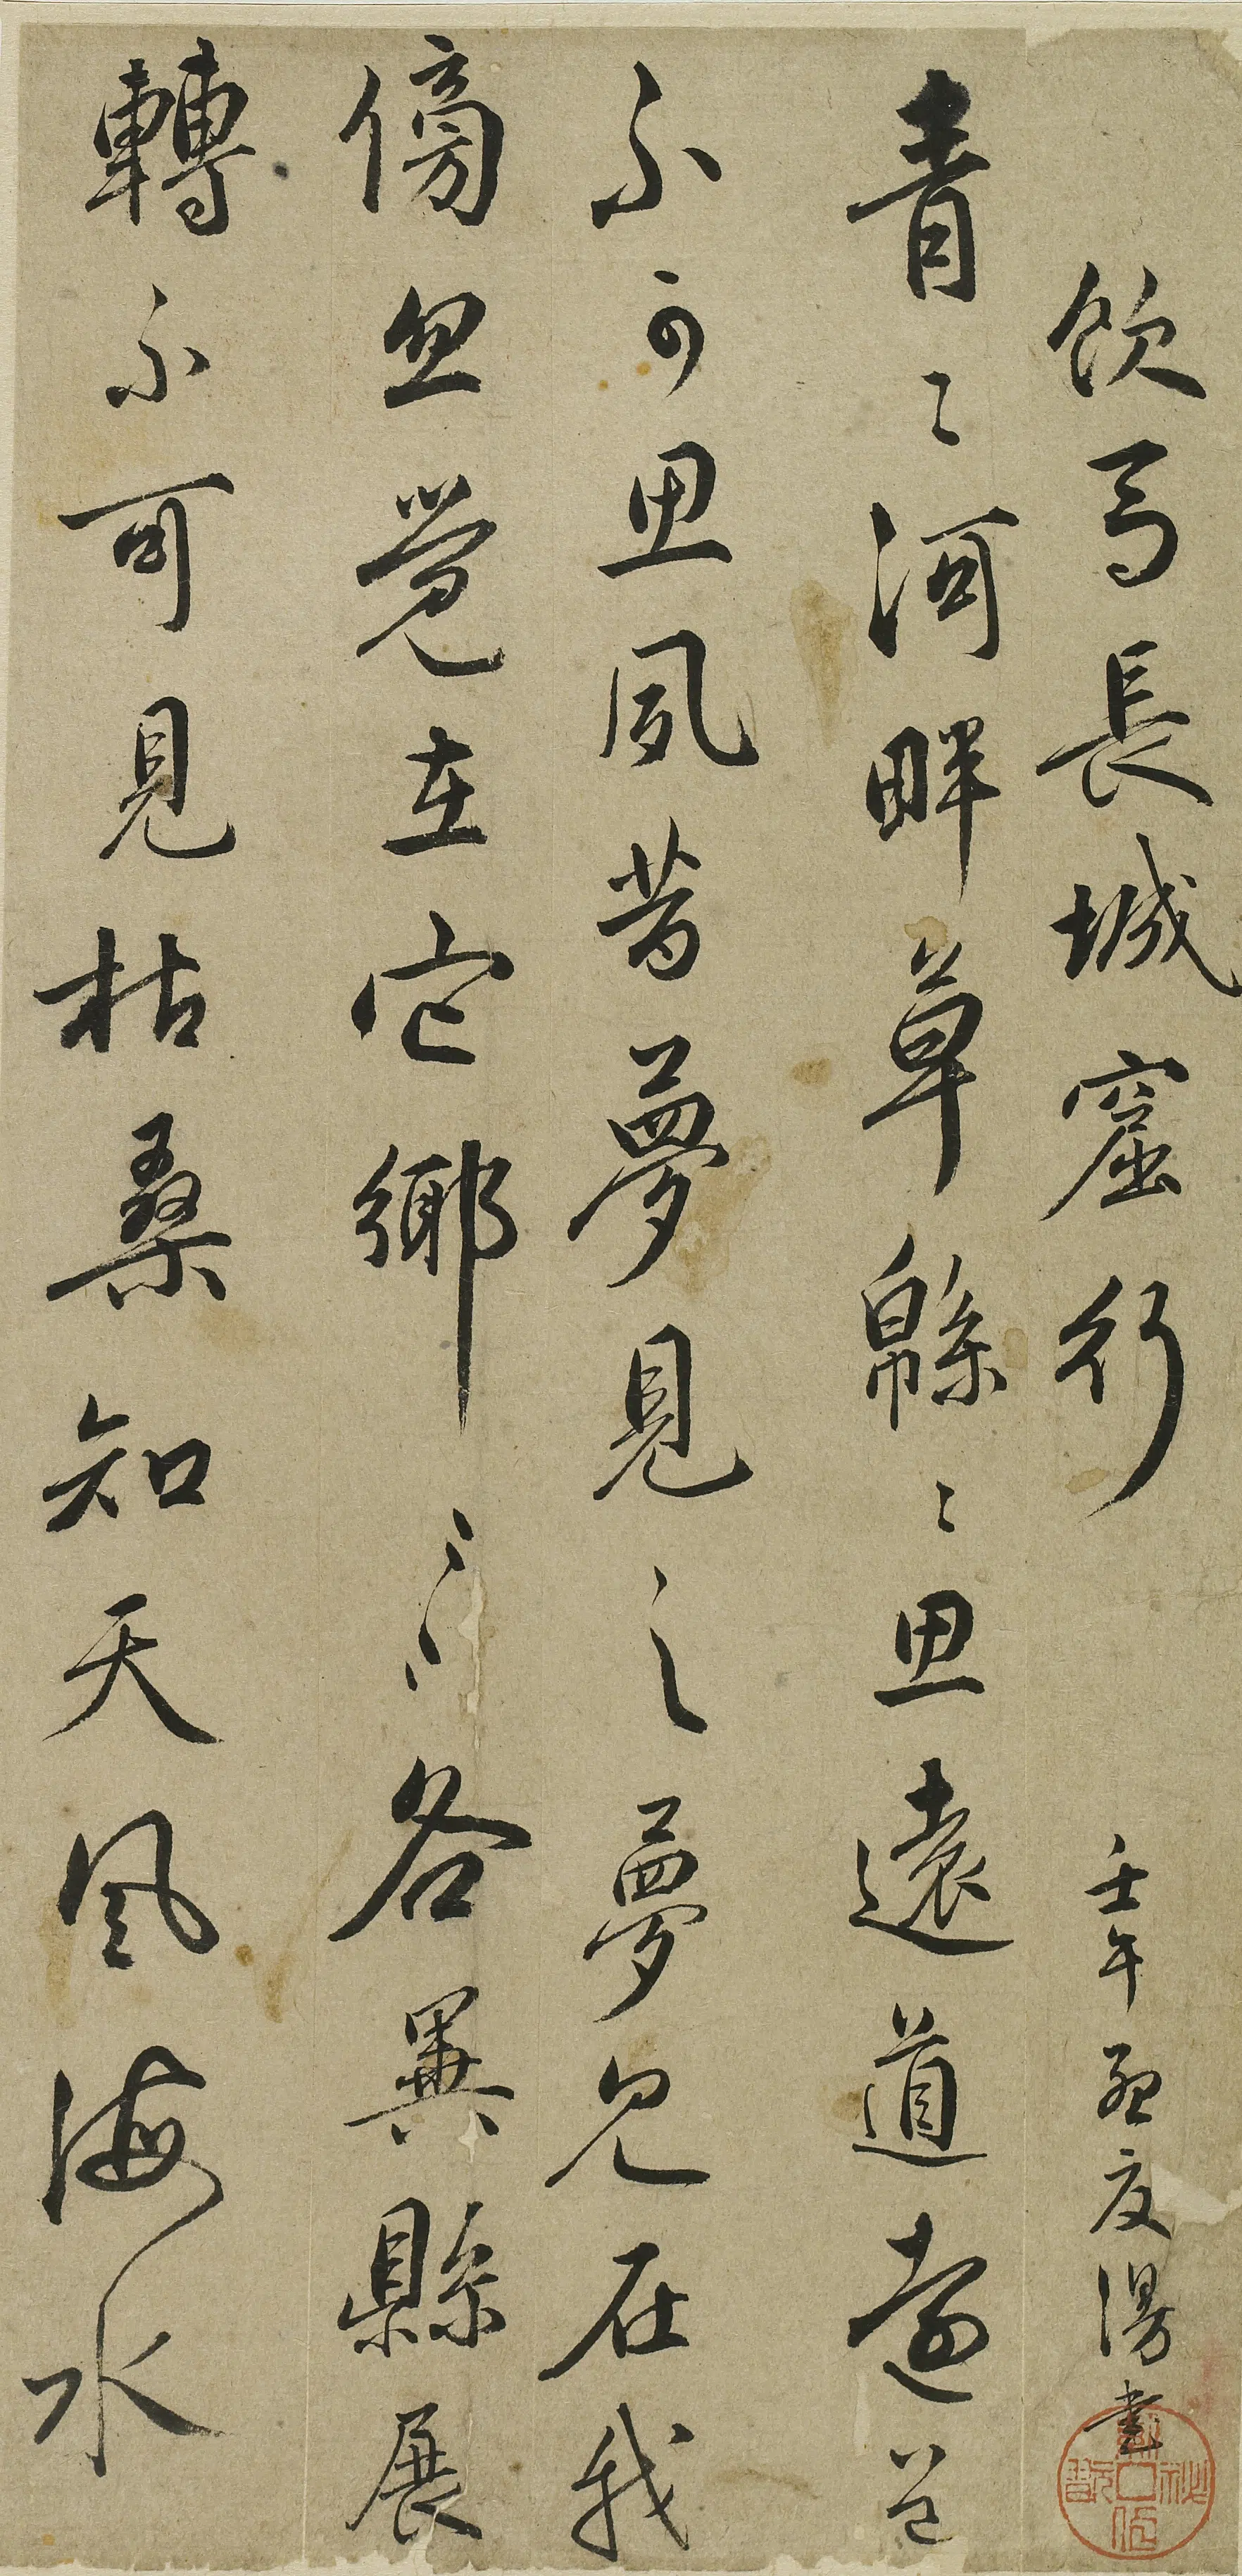 飲馬長城窟行 壬午孟夏漫書
青〻河畔草緜〻思遠道遠道
不可思夙昔夢見之夢見在我
傍忽覺在它鄉〻各異縣展
轉不可見枯桑知天風海水